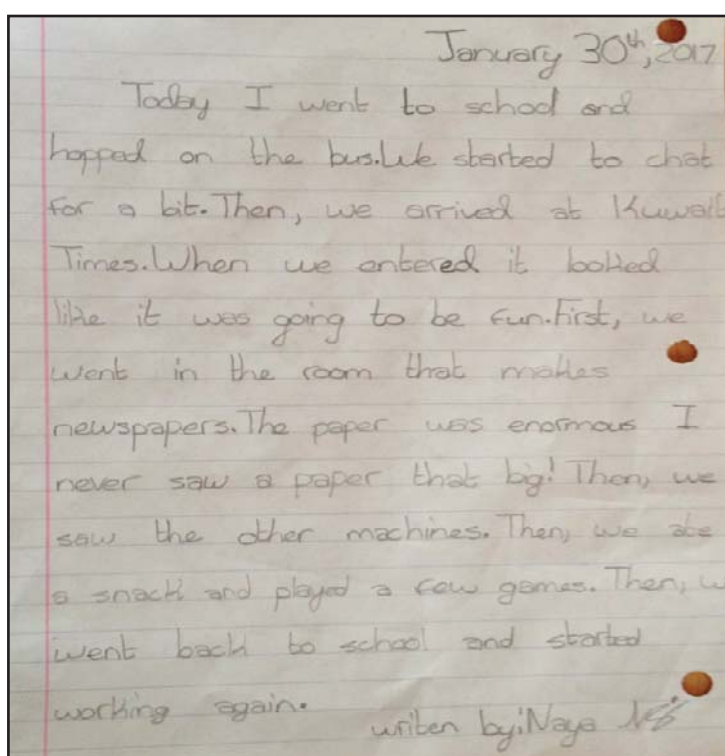 January 30th, 2017
Today I went to school and
hopped on the bus.We started to chat
for a bit.Then, we arrived at Kuwait
Times.When we entered it looked
like it was going to be fun.First, we
went in the room that makes
newspapers.The paper was enormous I
never saw a paper that big! Then, we
saw the other machines. Then, we ate
a snack and played a few games. Then, w
went back to school and started
working again.
writen by:Naya